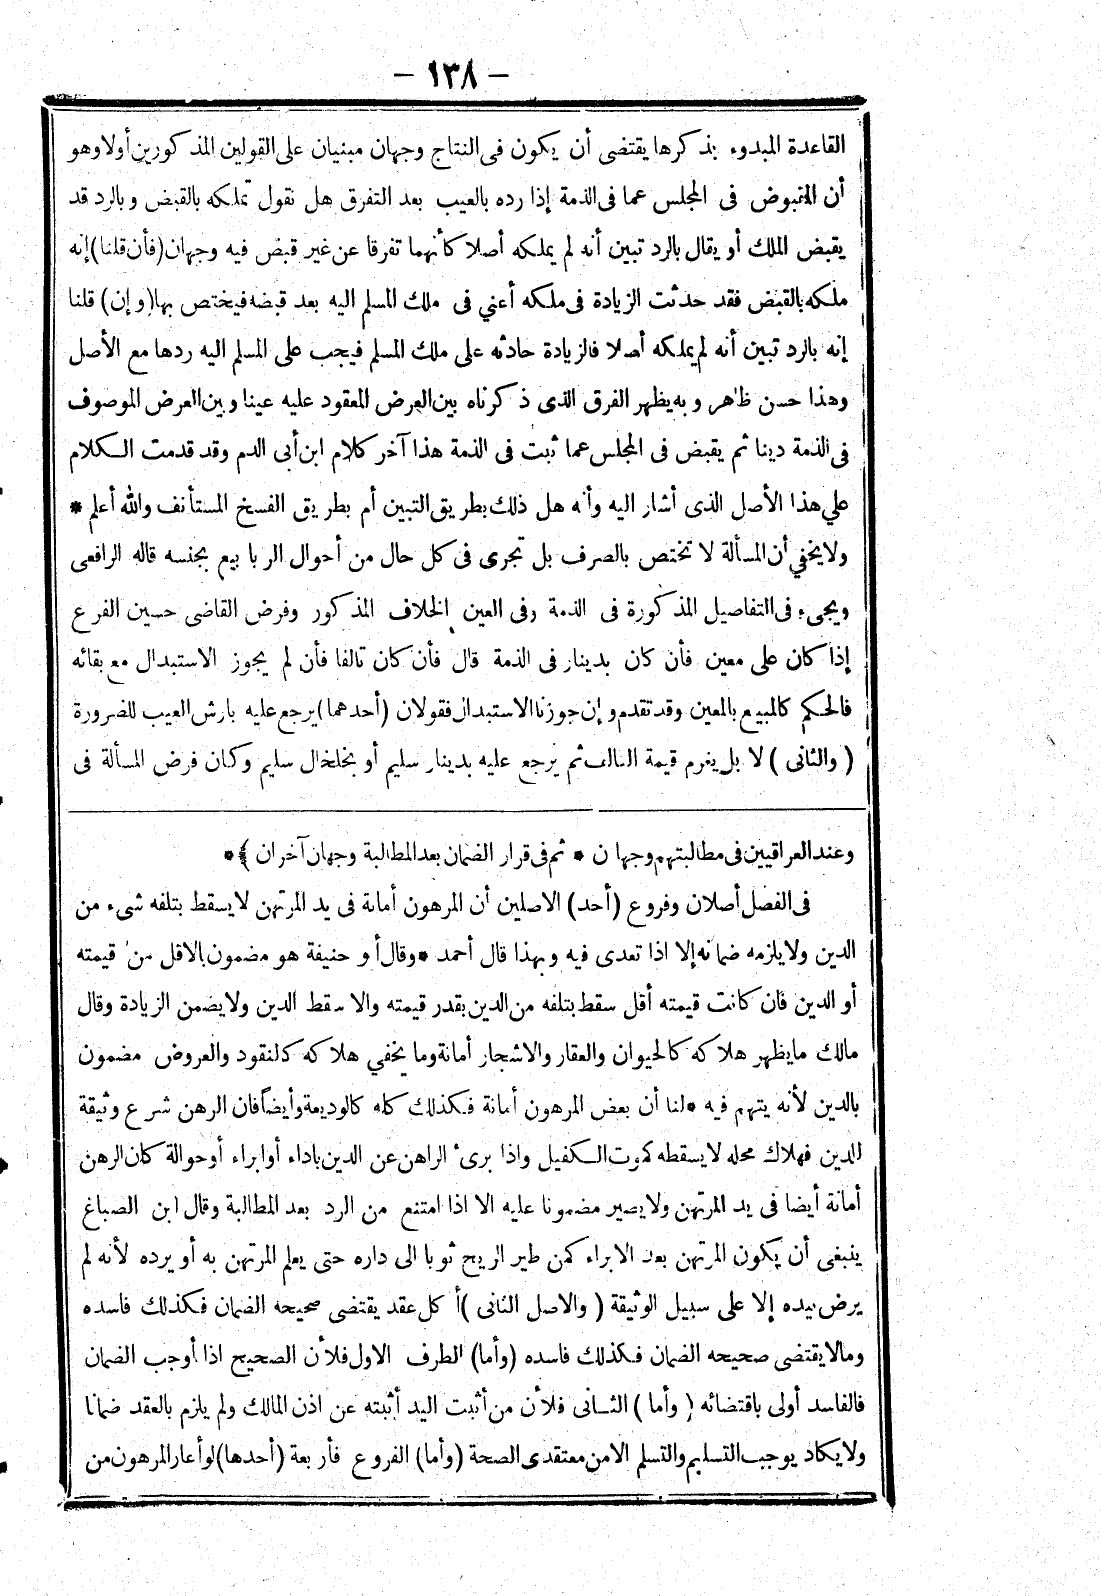 — ١٣٨ —
القاعدة المبدوء بذكرها يقتضى أن يكون فى النتاج وجهان مبنيان على القولين المذكورين أولا وهو
أن المقبوض فى المجلس عما فى الذمة إذا رده بالعيب بعد التفرق هل نقول تملكه بالقبض وبالرد قد
يقبض الملك أو يقال بالرد تبين أنه لم يملكه أصلا كأنهما تفرقا عن غير قبض فيه وجهان (فأن قلنا) إنه
ملكه بالقبض فقد حدثت الزيادة فى ملكه أعني فى ملك المسلم اليه بعد قبضه فيختص بها (وإن) قلنا
إنه بالرد تبين أنه لم يملكه أصلا فالزيادة حادثه على ملك المسلم فيجب على المسلم اليه ردها مع الأصل
وهذا حسن ظاهر وبه يظهر الفرق الذى ذكرناه بين العرض المعقود عليه عينا وبين العرض الموصوف
فى الذمة دينا ثم يقبض فى المجلس عما ثبت فى الذمة هذا آخر كلام ابن أبى الدم وقد قدمت الكلام
علي هذا الأصل الذى أشار اليه وأنه هل ذلك بطريق التبين أم بطريق الفسخ المستأنف والله أعلم *
ولا يخفي أن المسألة لا تختص بالصرف بل تجرى فى كل حال من أحوال الربا بيع بجنسه قاله الرافعى
ويجىء فى التفاصيل المذكورة فى الذمة وفى العين الخلاف المذكور وفرض القاضى حسين الفرع
إذا كان على معين فأن كان بدينار فى الذمة قال فأن كان تالفا فأن لم يجوز الاستبدال مع بقائه
فالحكم كالمبيع بالمعين وقد تقدم وإن جوزنا الاستبدال فقولان (أحدهما) يرجع عليه بارش العيب للضرورة
(والثانى) لا بل يغرم قيمة التالف ثم يرجع عليه بدينار سليم أو بخلخال سليم وكان فرض المسألة فى
وعند العراقيين فى مطالبتهم وجهان * ثم فى قرار الضمان بعد المطالبة وجهان آخران ﴾ *
فى الفصل أصلان وفروع (أحد) الاصلين أن المرهون أمانة فى يد المرتهن لا يسقط بتلفه شىء من
الدين ولا يلزمه ضمانه إلا اذا تعدى فيه وبهذا قال أحمد * وقال أبو حنيفة هو مضمون بالاقل من قيمته
أو الدين فان كانت قيمته أقل سقط بتلفه من الدين بقدر قيمته والا سقط الدين ولا يضمن الزيادة وقال
مالك ما يظهر هلاكه كالحيوان والعقار والاشجار أمانة وما يخفي هلاكه كالنقود والعروض مضمون
بالدين لأنه يتهم فيه * لنا أن بعض المرهون أمانة فكذلك كله كالوديعة وأيضاً فان الرهن شرع وثيقة
للدين فهلاك محله لا يسقطه كموت الكفيل واذا برئ الراهن عن الدين باداء أو ابراء أو حوالة كان الرهن
أمانة أيضا فى يد المرتهن ولا يصير مضمونا عليه الا اذا امتنع من الرد بعد المطالبة وقال ابن الصباغ
ينبغى أن يكون المرتهن بعد الابراء كمن طير الريح ثوبا الى داره حتى يعلم المرتهن به أو يرده لأنه لم
يرض بيده إلا على سبيل الوثيقة (والاصل الثانى) أن كل عقد يقتضى صحيحه الضمان فكذلك فاسده
ومالا يقتضى صحيحه الضمان فكذلك فاسده (وأما) الطرف الاول فلأن الصحيح اذا أوجب الضمان
فالفاسد أولى باقتضائه (وأما) الثانى فلأن من أثبت اليد أثبته عن اذن المالك ولم يلزم بالعقد ضمانا
ولا يكاد يوجب التسليم والتسلم الا من معتقدى الصحة (وأما) الفروع فأربعة (أحدها) لو أعار المرهون من